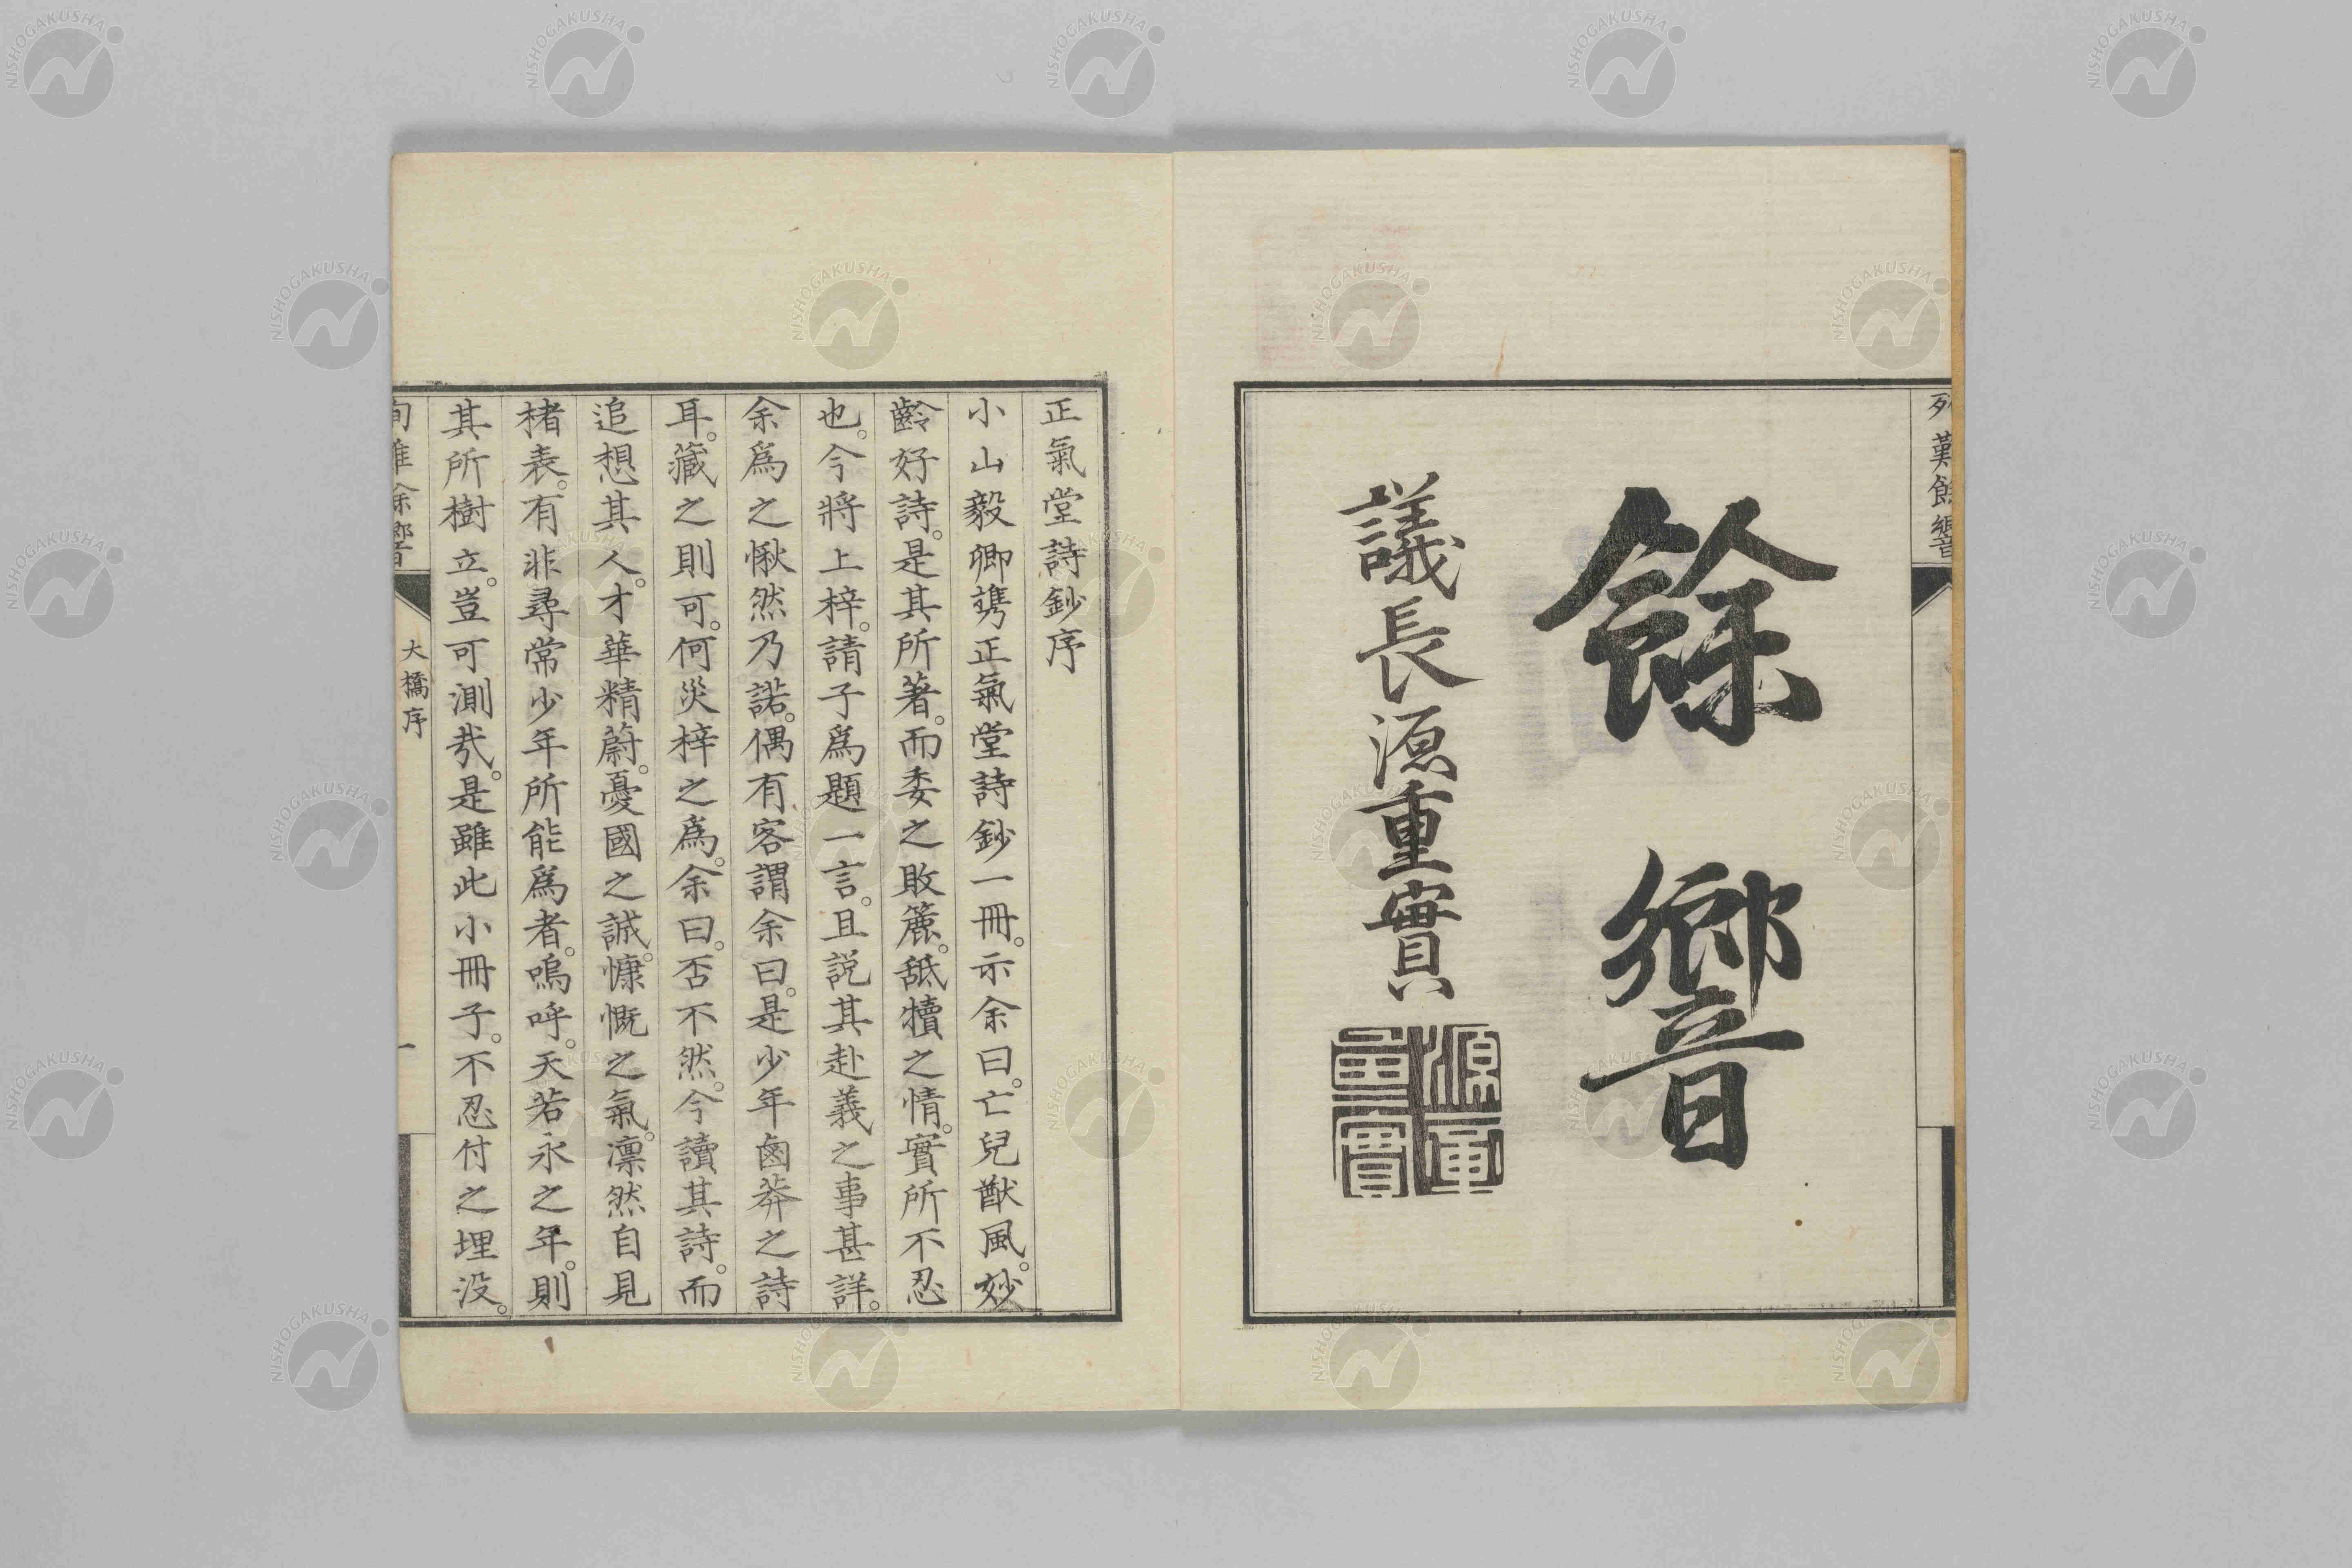 餘響
議長源重實
源重
重實
正氣堂詩鈔序
小山毅卿携正氣堂詩鈔一冊。示余曰。亡兒猷風。妙
齡好詩。是其所著。而委之敗簏。舐犢之情。實所不忍
也。今將上梓。請子爲題一言。且説其赴義之事甚詳。
余爲之愀然乃諾。偶有客謂余曰。是少年鹵莽之詩
耳。藏之則可。何災梓之爲。余曰。否不然。今讀其詩。而
追想其人。才華精蔚。憂國之誠。慷慨之氣。凛然自見
楮表。有非尋常少年所能爲者。嗚呼。天若永之年。則
其所樹立。豈可測哉。是雖此小冊子。不忍付之埋没。
大橋序
一
NISHOGAKUSHA